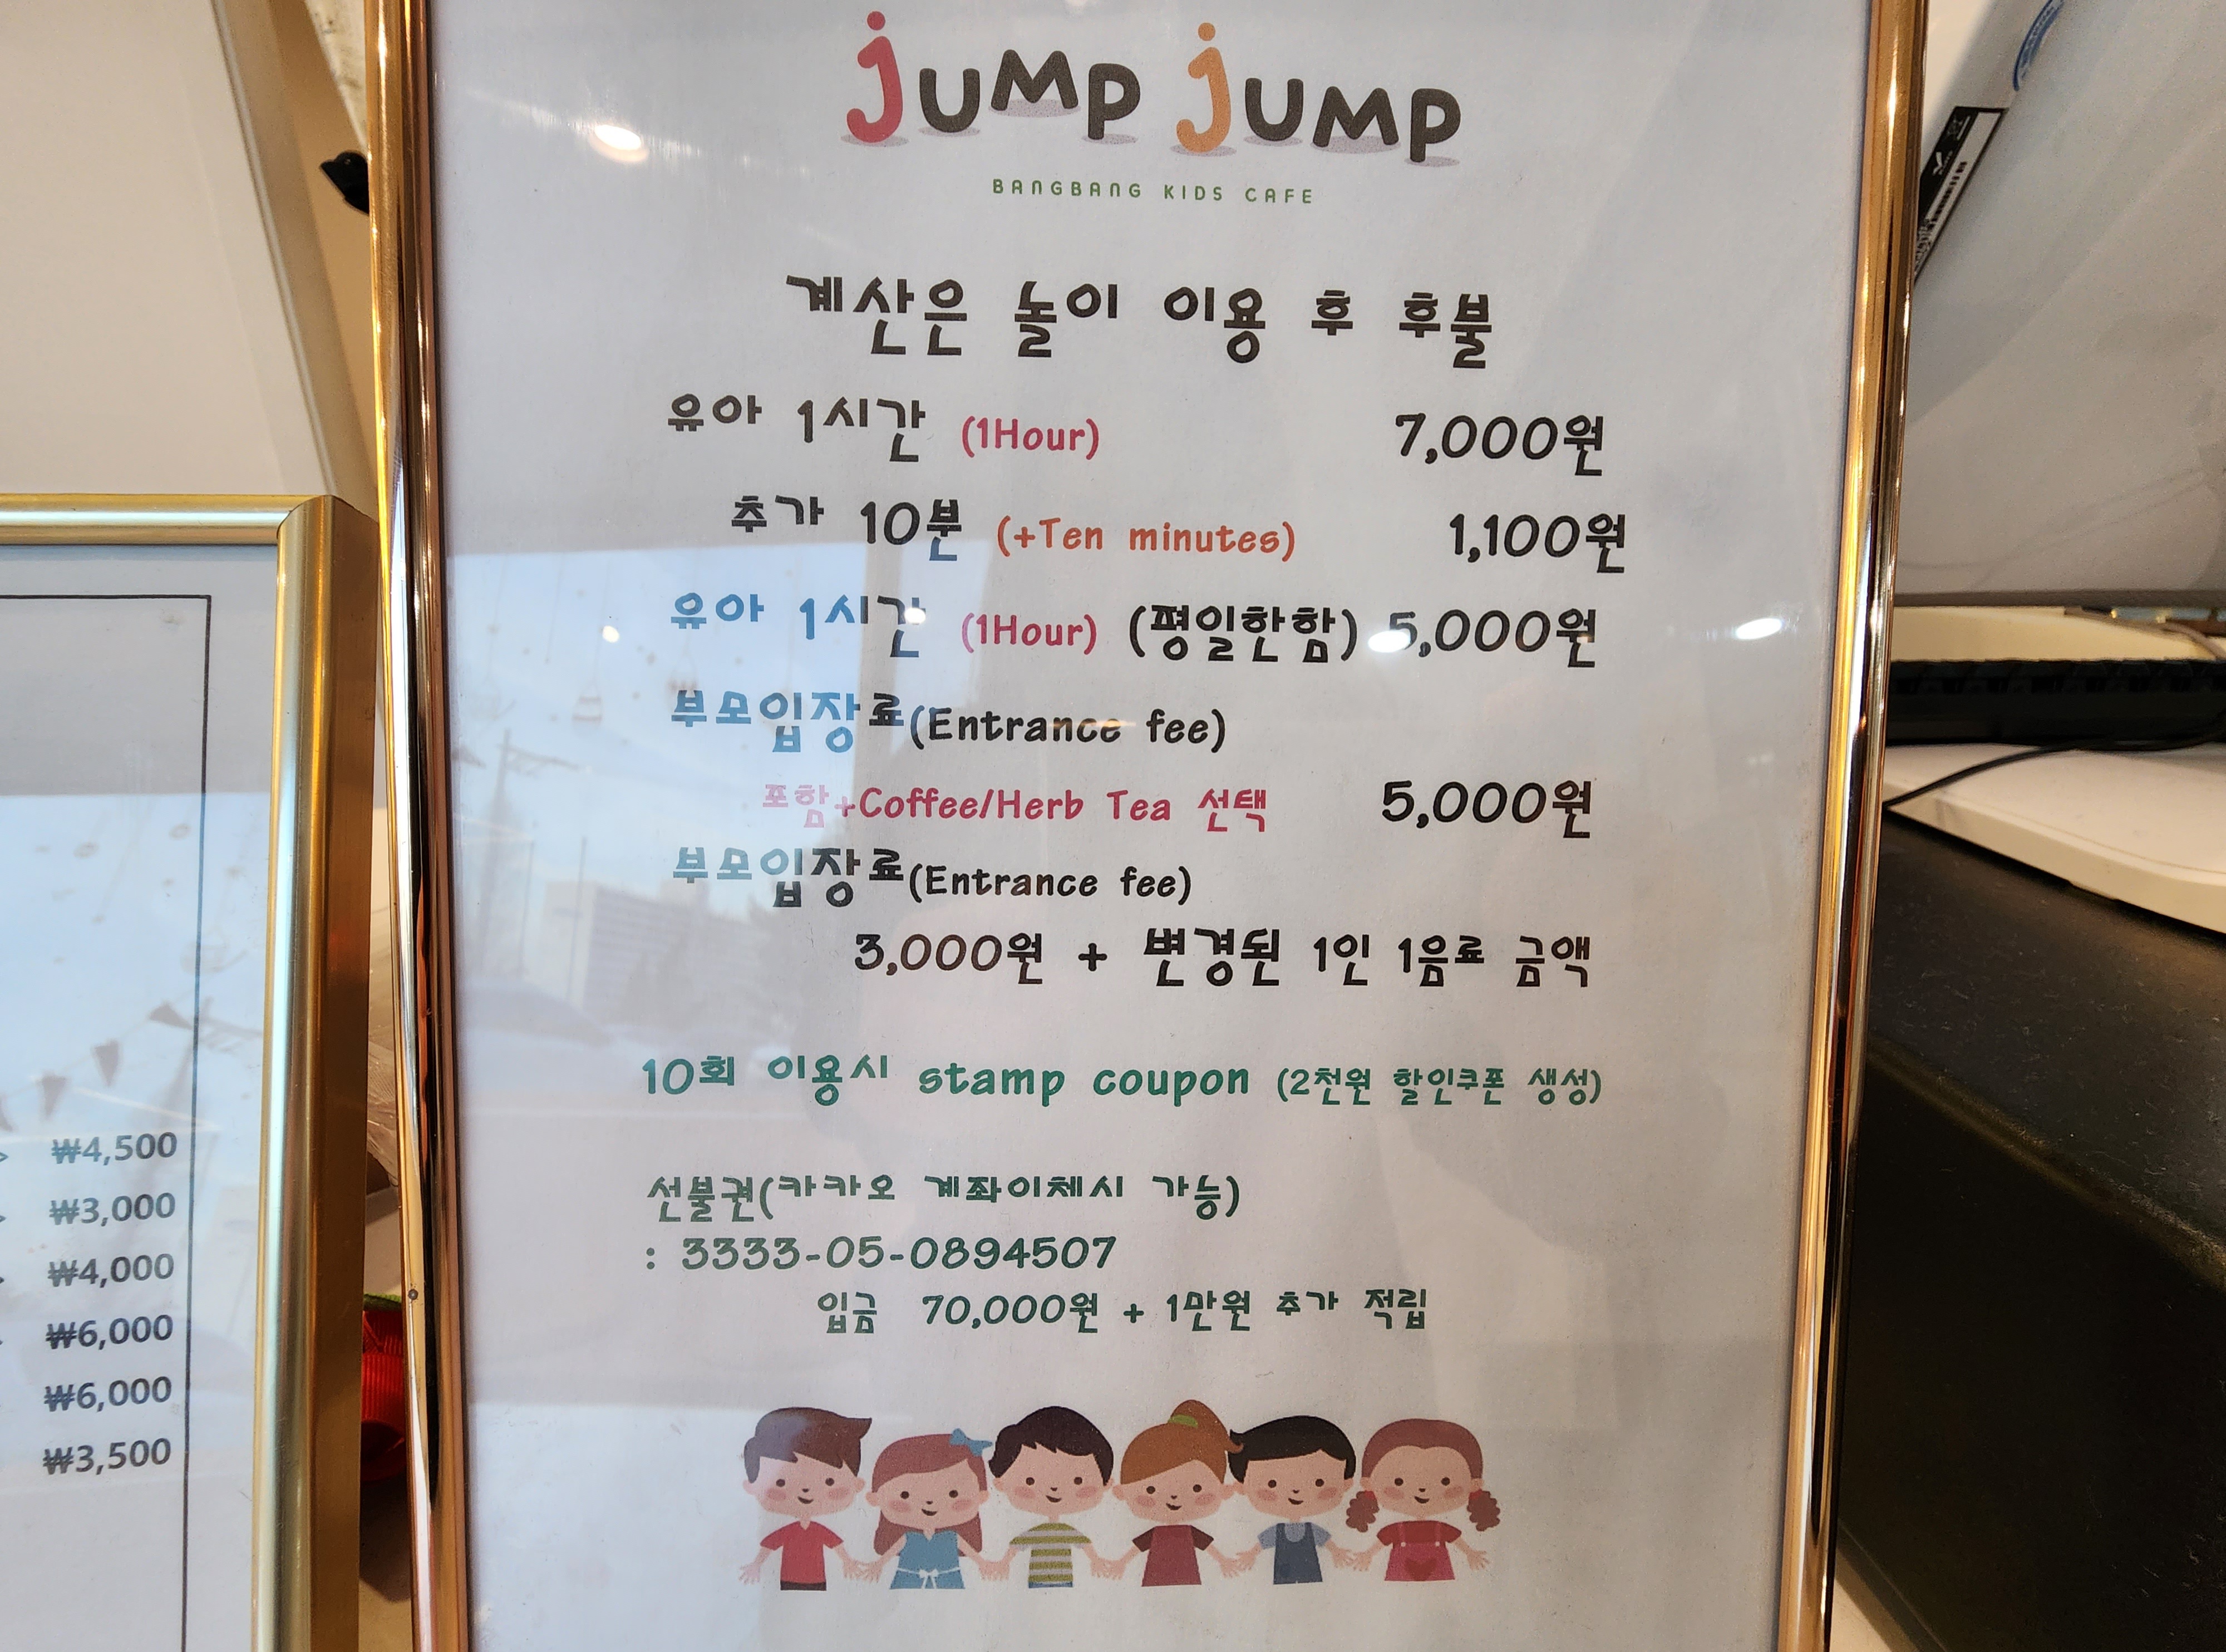 jump jump
BANGBANG KIDS CAFE
계산은 놀이 이용 후 후불
유아 1시간 (1Hour) 7,000원
추가 10분 (+Ten minutes) 1,100원
유아 1시간 (1Hour) (평일한함) 5,000원
부모입장료(Entrance fee)
포함+Coffee/Herb Tea 선택 5,000원
부모입장료(Entrance fee)
3,000원 + 변경된 1인 1음료 금액
10회 이용시 stamp coupon (2천원 할인쿠폰 생성)
선불권(카카오 계좌이체시 가능)
: 3333-05-0894507
입금 70,000원 + 1만원 추가 적립
₩4,500
₩3,000
₩4,000
₩6,000
₩6,000
₩3,500